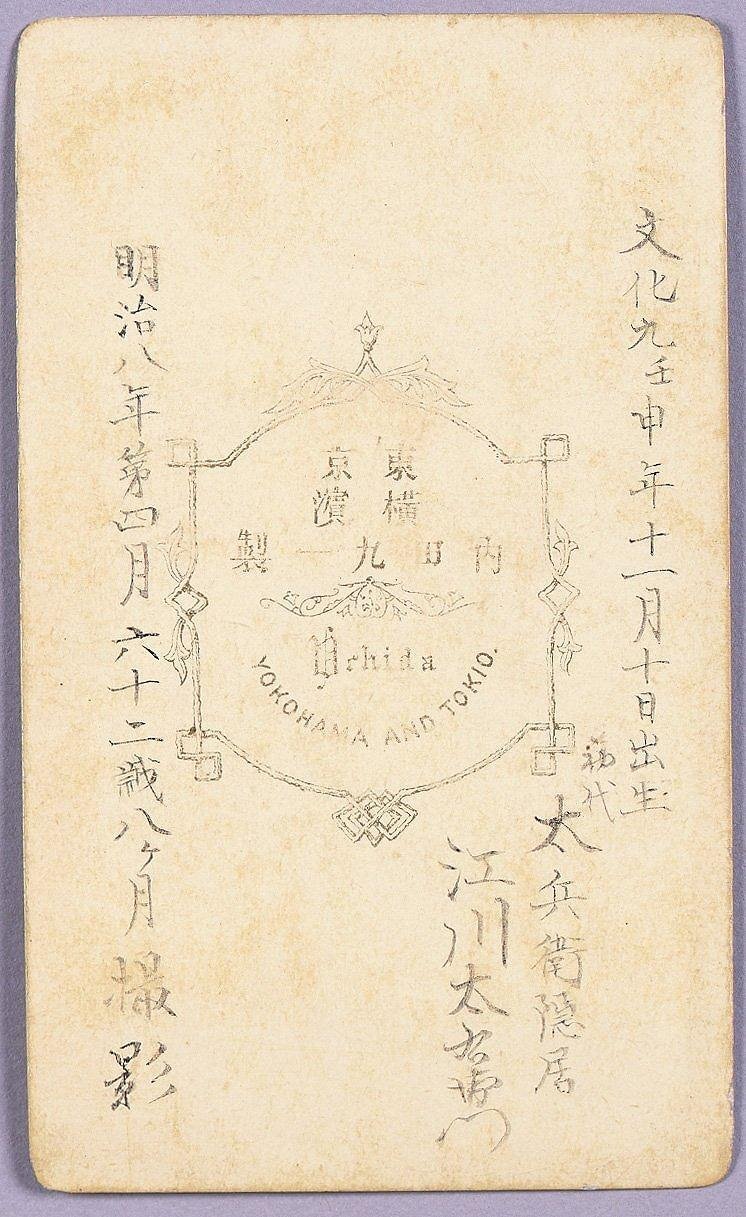 文化九壬申年十一月十日出生
初代
太兵衛隠居
江川太右衛門
東京
横濱
内田九一製
Uchida
YOKOHAMA AND TOKIO.
明治八年第四月六十二歳八ヶ月撮影